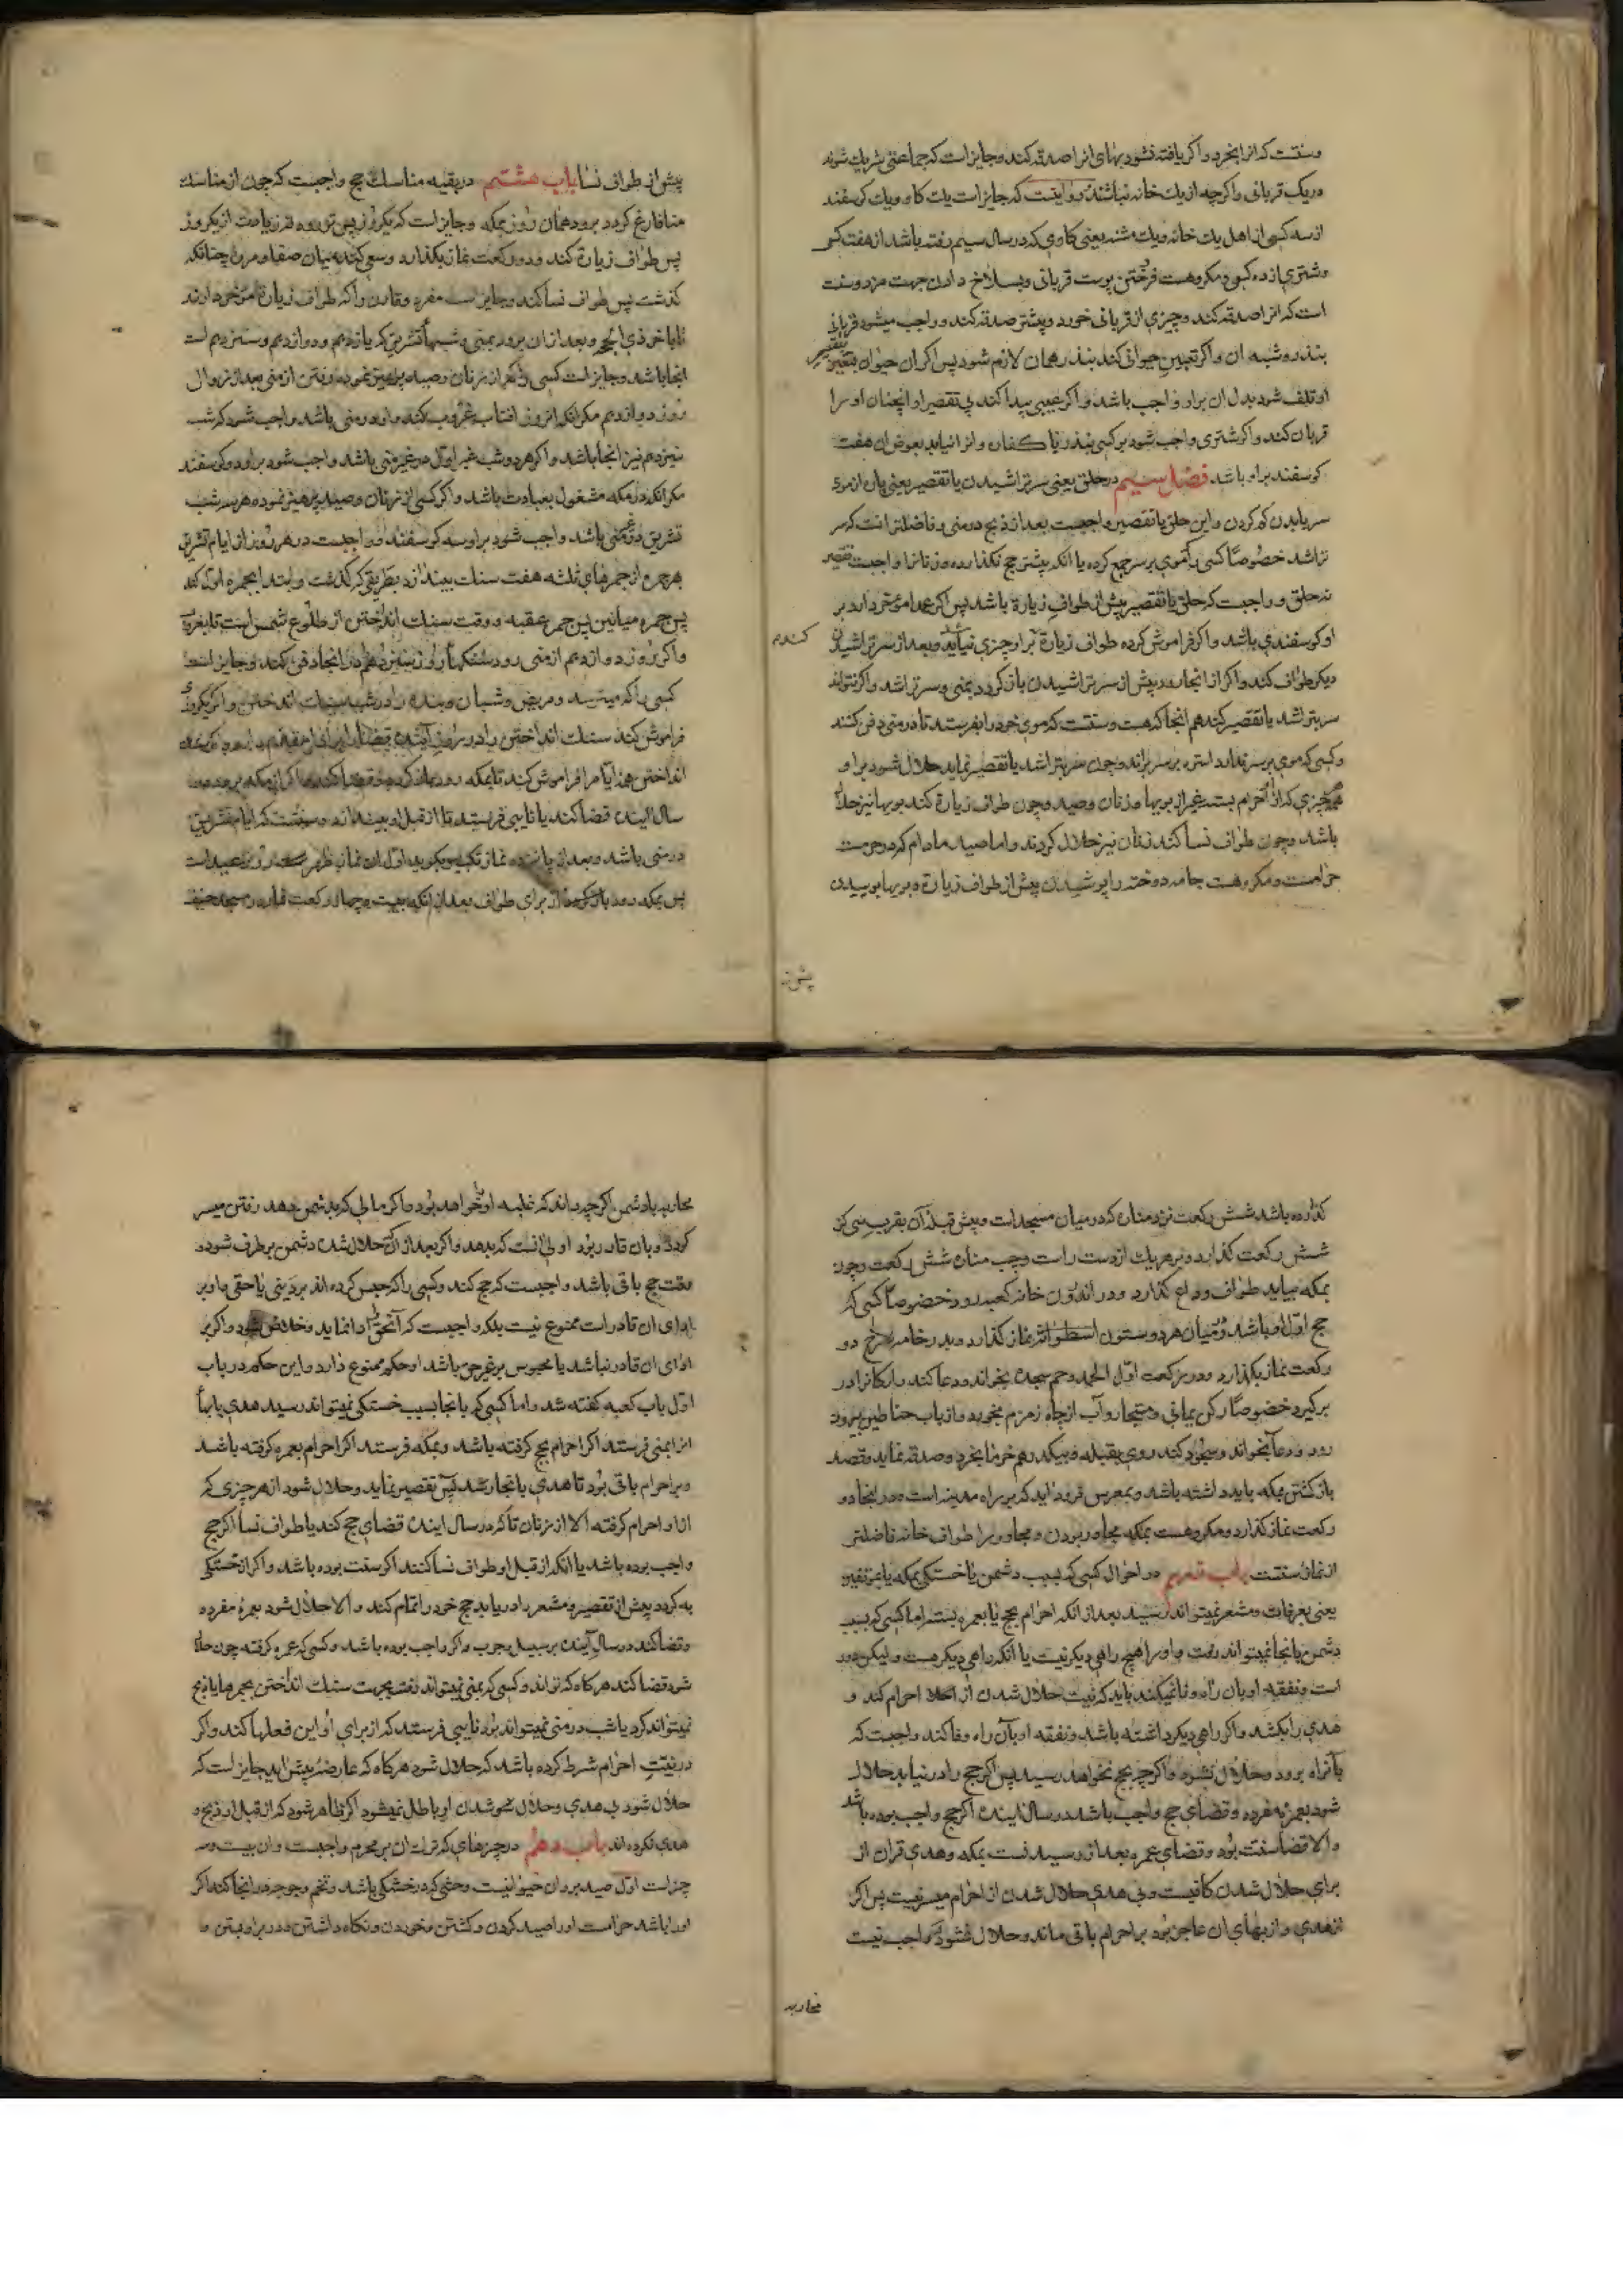 وسنتست که انرا بخرد واکر یافته نشود بهای انرا صدقه کند وجایز است که جماعتی شریك شوند
دریک قربانی واکرچه از یك خانه نباشند و روایتست که جایز است یك کاو ویك کوسفند
از سه کس از اهل یك خانه ویك مشنه یعنی کاوی که در سال سیم رفته باشد از هفت کس
وشتری از ده کس ومکروهست فرختن پوست قربانی وبسلاخ دادن جهت مزد وسنت
است که انرا صدقه کند وچیزی از قربانی خورد وبیشتر صدقه کند وواجب میشود قربانی
بنذر وشبه ان واکر تعیین حیوانی کند بنذر همان لازم شود پس اکر ان حیوان بتقصیر
او تلف شود بدل ان براو واجب باشد واکر عیبی پیدا کند بی تقصیر او انچنان او را
قربان کند واکر شتری واجب شود بر کسی بنذر یا کفاره وانرا نیابد بعوض ان هفت
کوسفند براو باشد فصل سیم در حلق یعنی سر تراشیدن یا تقصیر یعنی پاره از موی
سر یا بدن کم کردن واین حلق یا تقصیر واجبست بعد از ذبح در منی وفاضلتر انست که سر
تراشد خصوصًا کسی که موی بر سر جمع کرده یا انکه پیشتر حج نکذارده وزنانرا واجبست تقصیر
نه حلق وواجبست که حلق یا تقصیر پیش از طواف زیارة باشد پس اکر عمدا مؤخر دارد بر
او کوسفندی باشد واکر فراموش کرده طواف زیارة بر او چیزی نیاید وبعد از سر تراشیدن
دیکر طواف کند واکر از انجا رود پیش از سر تراشیدن باز کردد بمنی وسر تراشد واکر نتواند
سر بتراشد یا تقصیر کند هم انجا که هست وسنتست که موی خود را بفرستد تا در منی دفن کنند
وکسی که موی بر سر ندارد استره بر سر براند وچون سر بتراشد یا تقصیر نماید حلال شود براو
همه چیزی که از احرام بسته غیر از بویها وزنان وصید وچون طواف زیارة کند بویها نیز حلال
باشد وچون طواف نسا کند زنان نیز حلال کردند واما صید مادام که در حرمست
حرامست ومکروهست جامه دوخته را پوشیدن پیش از طواف زیارة وبویها بوییدن
پیش از طواف نسا باب هشتم در بقیه مناسك حج واجبست که چون از مناسك
منا فارغ کردد برود همان روز بمکه وجایز است که یکروز پس تر رود نه زیادت از یکروز
پس طواف زیارة کند ودو رکعت نماز بکذارد وسعی کند میان صفا ومروه چنانکه
کذشت پس طواف نسا کند وجایز است مفرد وقارن را که طواف زیارة مؤخر دارند
تا باخر ذی الحجه وبعد از ان برود بمنی وشبهای تشریق که یازدهم ودوازدهم وسیزدهم است
انجا باشد وجایز است کسی را که از زنان وصید پرهیز نموده رفتن از منی بعد از زوال
روز دوازدهم مکر انکه انروز افتاب غروب کند واو در منی باشد واجب شود که شب
سیزدهم نیز انجا باشد واکر هر دو شب غیر اول در غیر منی باشد واجب شود براو دو کوسفند
مکر انکه در مکه مشغول بعبادت باشد واکر کسی از زنان وصید پرهیز ننموده هر سه شب
تشریق در غیر منی باشد واجب شود براو سه کوسفند وواجبست در هر روز از ایام تشریق
هر جمره از جمرهای ثلثه هفت سنك بیندازد بطریقی که کذشت وابتدا بجمره اول کند
پس جمره میانین پس جمره عقبه ووقت سنك انداختن از طلوع شمس است تا بغروب
واکر روز دوازدهم از منی رود سنکهای روز سیزدهم را در انجا دفن کند وجایز است
کسی را که میترسد ومریض وشبان وبنده را در شب سنك انداختن واکر یکروز
فراموش کند سنك انداختن را در روز آینده قضا
انداختن همه ایام را فراموش کند تا بمکه رود باز کردد وقضا کند واکر از مکه برود در
سال اینده قضا کند یا نایبی فرستد تا از قبل او بیندازد وسنتست که ایام تشریق
در منی باشد وبعد از پانزده نماز تکبیر بکوید اول ان نماز ظهر روز عیداست
پس بمکه رود برای طواف بعد از انکه بیست وچهار رکعت نماز در مسجد خیف
کذارده باشد شش رکعت نزد مناره که در میان مسجد است وپیش قبله آن بقریب سی کز
شش رکعت کذارد وبر هریك از دست راست وچپ مناره شش رکعت وچون
بمکه بیاید طواف وداع کذارد ودر اندرون خانه کعبه رود خصوصاً کسی که
حج اول او باشد ودر میان هر دو ستون اسطوانه نماز کذارد وبر رخامه سرخ دو
رکعت نماز بکذارد ودر رکعت اول الحمد وحم سجده بخواند ودعا کند وارکانرا در
برکیرد خصوصاً رکن یمانی ومستجار وآب از چاه زمزم بخورد واز باب حناطین بیرون
رود ودعا بخواند وسجود کند روی بقبله وبیکدرهم خرما بخرد وصدقه نماید وقصد
باز کشتن بمکه باید داشته باشد وبمعرس فرود آید که بر راه مدینه است ودر انجا دو
رکعت نماز کذارد ومکروهست بمکه مجاور بودن ومجاور را طواف خانه فاضلتر
از نماز سنتست باب نهم در احوال کسی که بسبب دشمن یا خستکی بمکه یا بموقفین
یعنی بعرفات ومشعر نمیتواند رسید بعد از انکه احرام بحج یا بعمره بسته اما کسی که بسبب
دشمن بانجا نمیتواند رفت واو را هیچ راهی دیکر نیست یا انکه راهی دیکر هست ولیکن دور
است ونفقه او بان راه وفا نمیکند باید که نیت حلال شدن از احرام کند و
هدی را بکشد واکر راهی دیکر داشته باشد ونفقه او بآن راه وفا کند واجبست که
بآنراه برود وحلال نشود واکرچه بحج نخواهد رسید پس اکر حج را در نیابد حلال
شود بعمره مفرده وقضای حج واجب باشد در سال اینده اکر حج واجب بوده باشد
والا قضا سنت بود وقضای عمره بعد از رسیدنست بمکه وهدی قران از
برای حلال شدن کافیست وبی هدی حلال شدن از احرام میسر نیست پس اکر
از هدی واز بهای ان عاجز بود بر احرام باقی ماند وحلال نشود وواجب نیست
محاربه
محاربه با دشمن اکرچه داند که غلبه او را خواهد بود واکر مالی که بدشمن دهد رفتن میسر
کردد وبان قادر بود اولی انست که بدهد واکر بعد از آنکه حلال شد دشمن برطرف شود و
وقت حج باقی باشد واجبست که حج کند وکسی را که حبس کرده اند بر دینی یا حقی واو بر
ادای ان قادر است ممنوع نیست بلکه واجبست که آنحق را ادا نماید وخلاص شود واکر بر
ادای ان قادر نباشد یا محبوس بر غیر حق باشد او حکم ممنوع دارد واین حکم در باب
اول باب کعبه کفته شد واما کسی که بانجا بسبب خستکی نمیتواند رسید هدی یا بهای
انرا بمنی فرستد اکر احرام بحج کرفته باشد وبمکه فرستد اکر احرام بعمره کرفته باشد
وبر احرام باقی بود تا هدی بانجا رسد پس تقصیر نماید وحلال شود از هر چیزی که
ازاو احرام کرفته الا از زنان تا که در سال اینده قضای حج کند یا طواف نسا اکر حج
واجب بوده باشد یا انکه از قبل او طواف نسا کنند اکر سنت بوده باشد واکر از خستکی
به کردد پیش از تقصیر ومشعر را دریابد حج خود را تمام کند والا حلال شود بعمرۀ مفرده
وقضا کند در سال آینده بر سبیل وجوب واکر واجب بوده باشد وکسی که عمره کرفته چون حلال
شود قضا کند هر کاه که تواند وکسی که بمنی نمیتواند رفت بجهت سنك انداختن بجمرها یا ذبح
نمیتواند کرد یا شب در منی نمیتواند بود نایبی فرستد که از برای او این فعلها کند واکر
در نیت احرام شرط کرده باشد که حلال شود هر کاه که عارضۀ پیش اید جایز است که
حلال شود بی هدی وحلال شدن او باطل نمیشود اکر ظاهر شود که از قبل او ذبح
هدی نکرده اند باب دهم در چیزهای که ترك ان بر محرم واجبست وان بیست وسه
چیز است اول صید بر وان حیوانیست وحشی که در خشکی باشد وتخم وجوجه در انجا کند اکر
او را باشد حرامست او را صید کردن وکشتن وخوردن ونکاه داشتن ودر براو بستن و